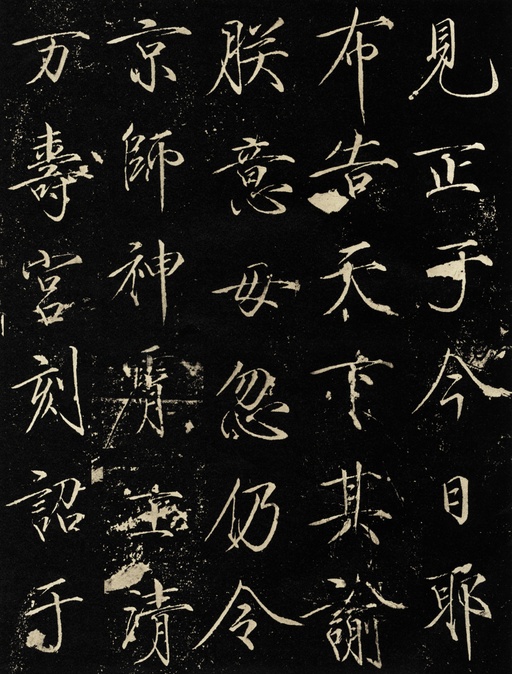 見正于今日耶
布告天下其諭
朕意毋忽仍令
京師神霄玉清
万壽宮刻詔于